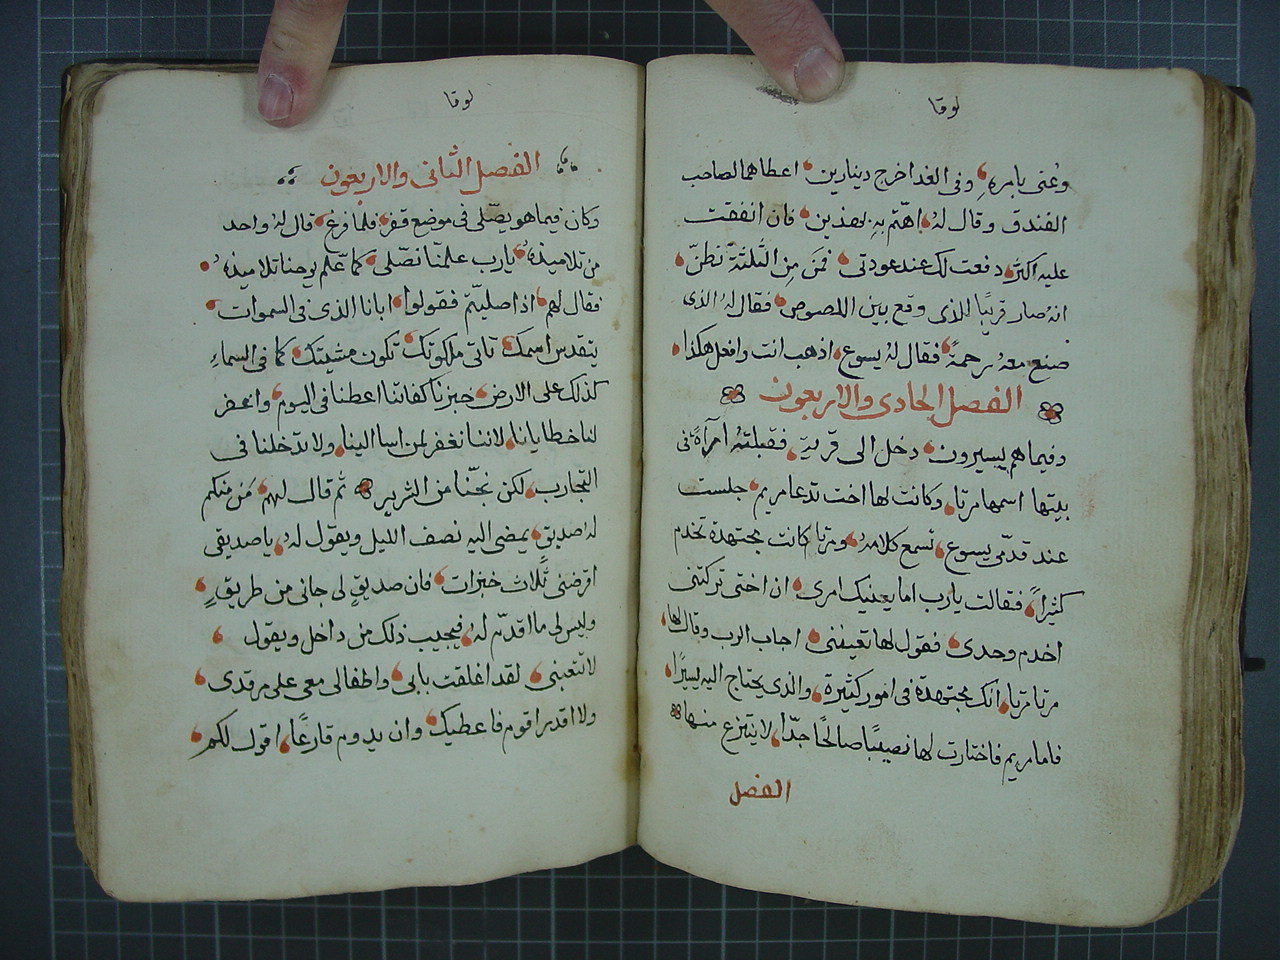 لوقا
وعُنى بامره وفى الغد اخرج دينارين اعطاهما لصاحب
الفندق وقال لهُ اهّتم بهِ بهذين فان انفقت
عليه اكثر دفعت لك عند عودتى فمَن مِن الثلثة تظنّ
انهُ صار قريبًا للذى وقع بين اللصوص فقال لهُ الذى
صنع معهُ رحمةً فقال لهُ يسوع اذهب انت وافعل هكذا
الفصل الحادى والاربعون
وفيما هم يسيرون دخل الى قرية فقبلتهُ امرآةً فى
بيتها اسمها مرتا وكانت لها اخت تدعا مريم جلست
عند قدمّى يسوع تسمع كلامهُ ومرتا كانت مجتهدة تخدم
كثيراً فقالت يارب اما يعنيك امرى ان اختى تركتنى
اخدم وحدى فقول لها تعيننى اجاب الرب وقال لها
مرتا مرتا انك مجتهدة فى امور كثيرة والذى يحتاج اليه يسيرًا
فاما مريم فاختارت لها نصيبًا صالحًا جدّاً لا ينتزع منها
الفصل
لوقا
الفصل الثانى والاربعون
وكان فيما هو يصّلى فى موضع قفر فلما فرغ قال لهُ واحد
من تلاميذهُ يارب علمنا نصّلى كما عّلم يوحنا تلاميذهُ
فقال لهم اذا صليتم فقولوا ابانا الذى فى السموات
يتقدس اسمك تاتى ملكوتك تكون مشيتك كما فى السماءِ
كذلك على الارض خبزنا كفاتنا اعطنا فى اليوم واغفر
لنا خطايانا لاننا نغفر لمن اسا الينا ولا تدخلنا فى
التجارب لكن نجّنا من الشرير ثم قال لهم مَن منكم
لهُ صديق يمضى اليه نصف الليل ويقول لهُ ياصديقى
اقرضنى ثلاث خبزات فان صديقٍ لى جانى من طريقٍ
وليس لى ما اقدّم لهُ فيجيب ذلك من داخل ويقول
لا تتعبنى لقد اغلقت بابى واطفالى معى على مرقدى
ولا اقدر اقوم فاعطيك وان يدوم قارعًا اقول لكم